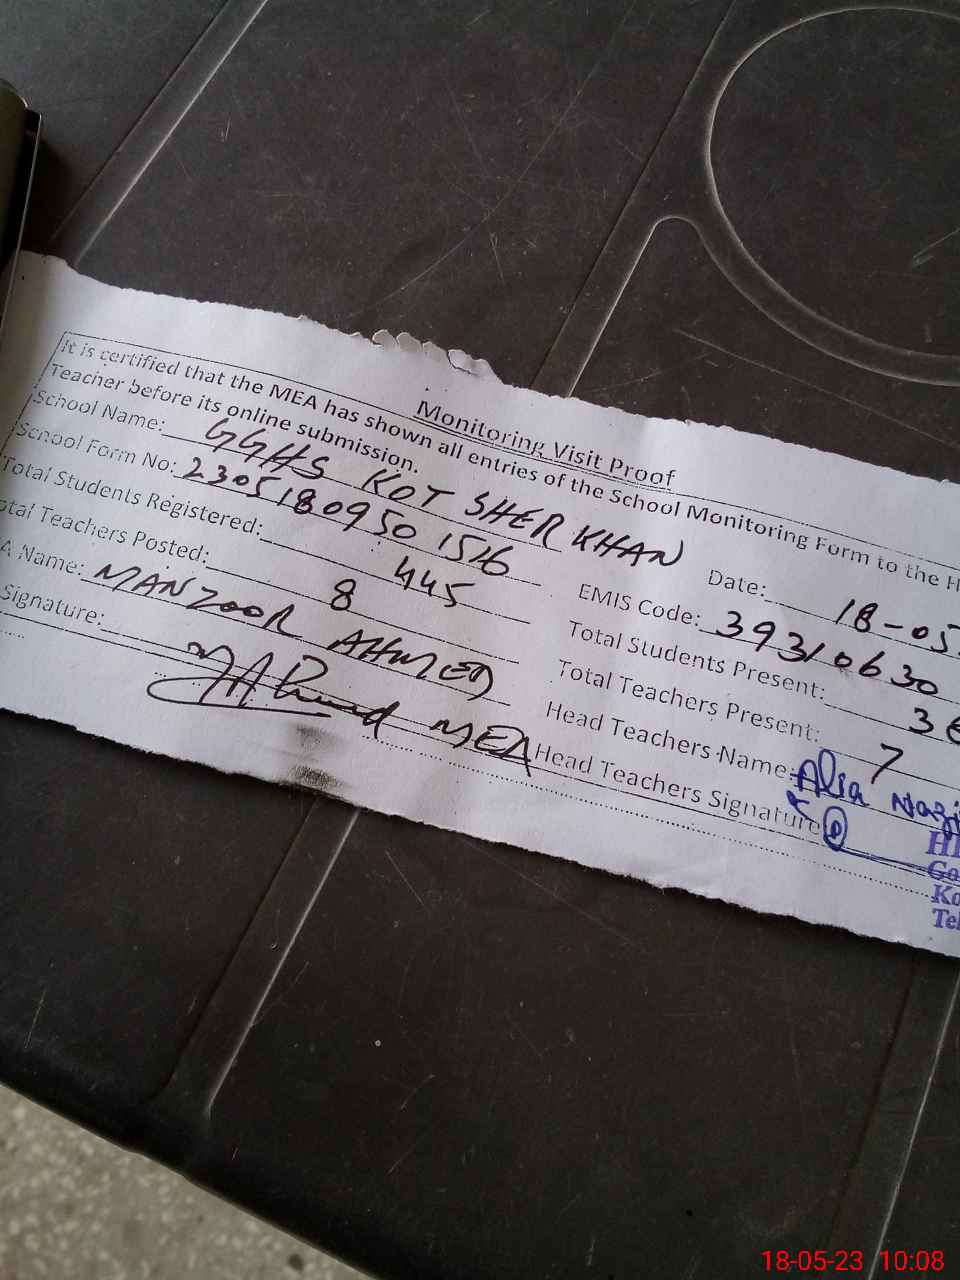 Monitoring Visit Proof
It is certified that the MEA has shown all entries of the School Monitoring Form to the H
Teacher before its online submission.
School Name: GGHS KOT SHER KHAN Date: 18-05
School Form No: 2305180950 1516 EMIS Code: 39310630
Total Students Registered: 445 Total Students Present: 3
otal Teachers Posted: 8 Total Teachers Present: 7
A Name: MANZOOR AHMED Head Teachers Name:
Signature: MEA Head Teachers Signature
Tel
18-05-23 10:08